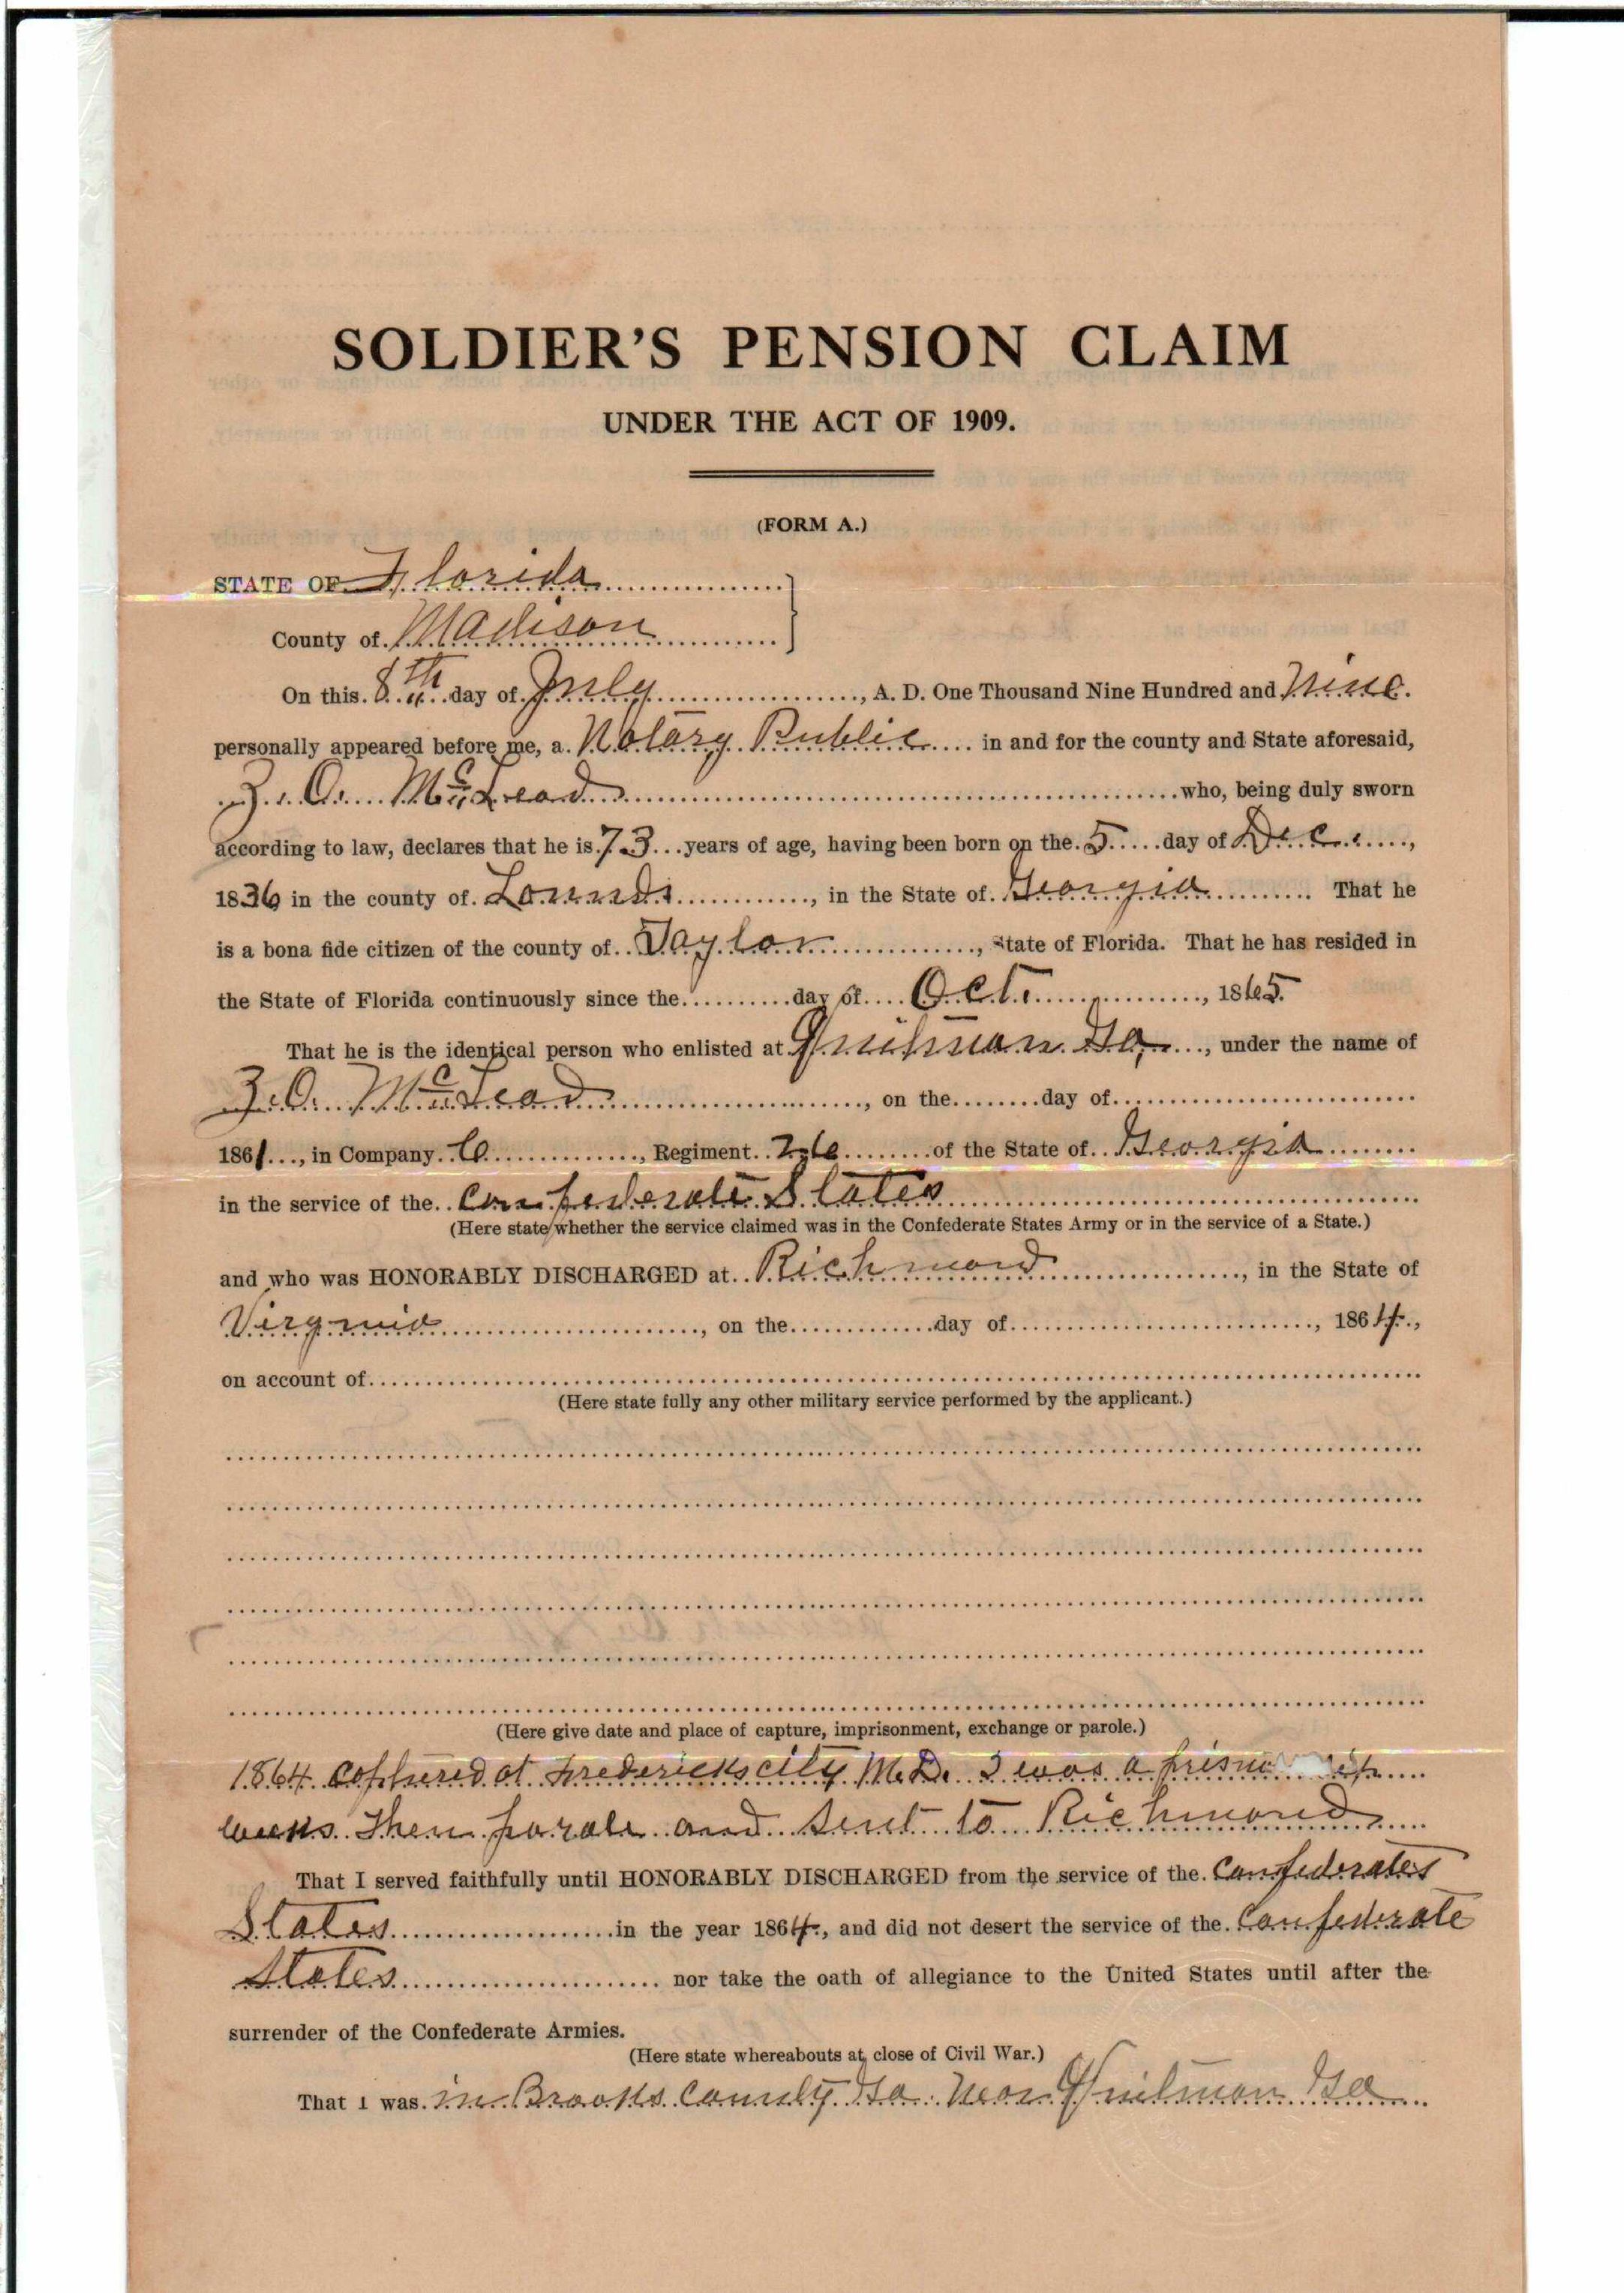 SOLDIER'S PENSION CLAIM
UNDER THE ACT OF 1909.
(FORM A.)
STATE OF Florida
County of Madison
On this 8th day of July, A. D. One Thousand Nine Hundred and Nine.
personally appeared before me, a Notary Public in and for the county and State aforesaid,
Z. O. McLeod who, being duly sworn
according to law, declares that he is 73 years of age, having been born on the 5 day of Dec.,
1836 in the county of Lownds, in the State of Georgia. That he
is a bona fide citizen of the county of Taylor, State of Florida. That he has resided in
the State of Florida continuously since the day of Oct., 1865
That he is the identical person who enlisted at Quitman Ga, under the name of
Z. O. McLeod, on the day of
1861, in Company C, Regiment 26 of the State of Georgia
in the service of the Confederate States
(Here state whether the service claimed was in the Confederate States Army or in the service of a State.)
and who was HONORABLY DISCHARGED at Richmond, in the State of
Virginia, on the day of, 1864,
on account of
(Here state fully any other military service performed by the applicant.)
(Here give date and place of capture, imprisonment, exchange or parole.)
1864 captured at Fredericks city M.D. I was a
weeks then parole and sent to Richmond
That I served faithfully until HONORABLY DISCHARGED from the service of the Confederates
States in the year 1864, and did not desert the service of the Confederate
States nor take the oath of allegiance to the United States until after the
surrender of the Confederate Armies.
(Here state whereabouts at close of Civil War.)
That I was in Brooks County Ga. Near Quitman Ga